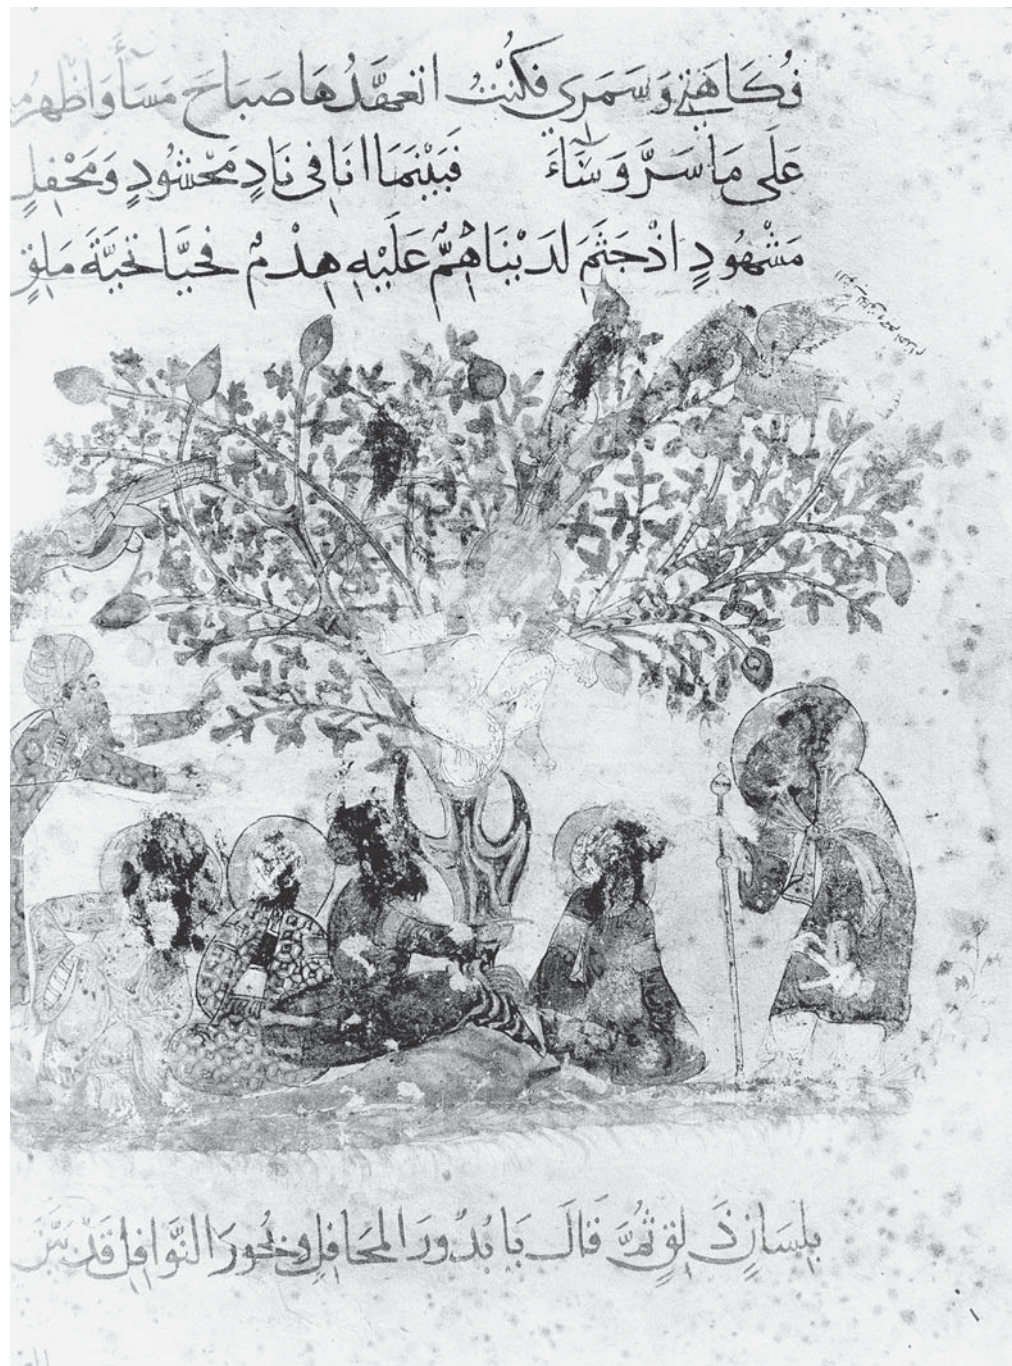 فُكَاهَتِي وَسَمَرِي فَكُنْتُ اتعَهَّدُهَا صَبَاحَ مَسَاءً وَاظهرُ
عَلَى مَا سَرَّ وَسَاءَ فَبَيْنَمَا انَا فِي نَادٍ مَحْشُودٍ وَمَحْفِلٍ
مَشْهُودٍ اذْ جَثَمَ لَدَيْنَا هِمٌّ عَلَيْهِ هِدْمٌ فَحَيَّا تَحِيَّةَ مَلِقٍ
بِلِسَانٍ ذَلِقٍ ثُمَّ قَالَ يَا بُدُورَ المحَافِلِ وَبُحُورَ النَّوَافِلِ قَدْ بَيَّنَ